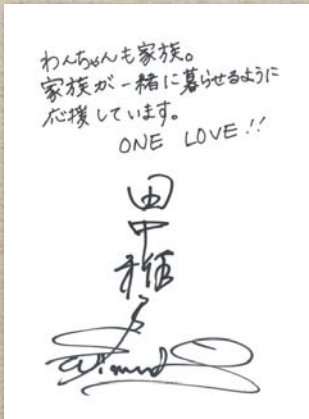 わんちゃんも家族。
家族が一緒に暮らせるように
応援しています。
ONE LOVE!!
田中雅